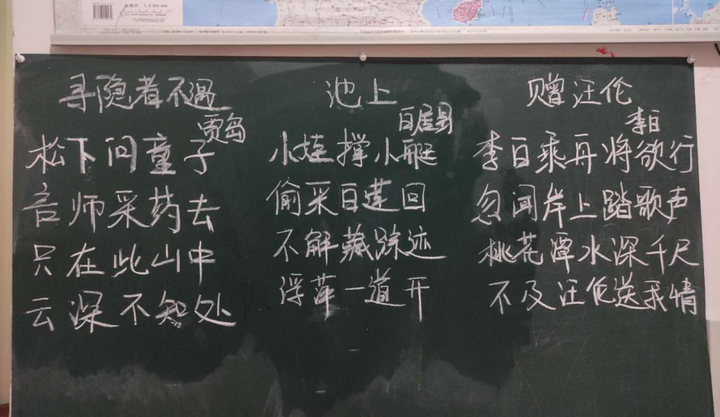 寻隐者不遇
贾岛
松下问童子
言师采药去
只在此山中
云深不知处
池上
白居易
小娃撑小艇
偷采白莲回
不解藏踪迹
浮萍一道开
赠汪伦
李白
李白乘舟将欲行
忽闻岸上踏歌声
桃花潭水深千尺
不及汪伦送我情